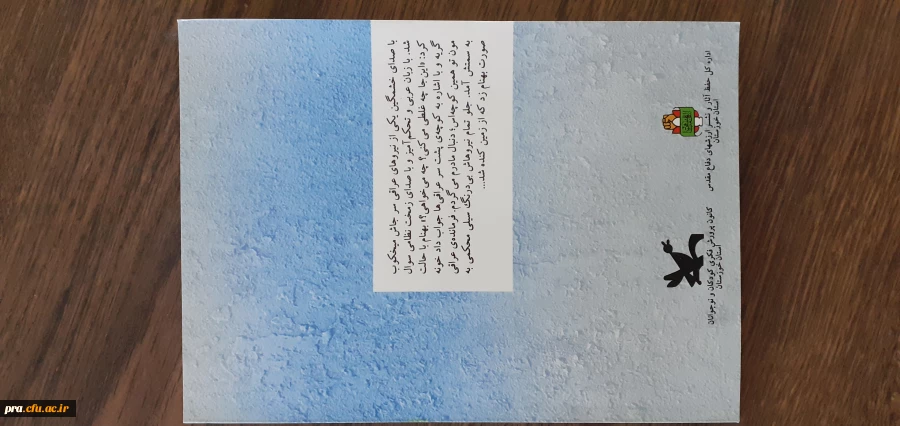 با صدای خشمگین یکی از نیروهای عراقی سر جاش میخکوب
شد. با زبان عربی و تحکم‌آمیز و با صدای زمخت نظامی سوال
کرد: «این‌جا چه غلطی می‌کنی؟ چه می‌خواهی؟» بهنام با حالت
گریه و با اشاره به کوچه‌ی پشت سر عراقی‌ها جواب داد خونه
مون تو همین کوچه‌اس؛ دنبال مادرم می‌گردم. فرمانده‌ی عراقی
به سمتش آمد. جلو تمام نیروهاش بی‌درنگ سیلی محکمی به
صورت بهنام زد که از زمین کنده شد...
اداره کل حفظ آثار و نشر ارزشهای دفاع مقدس
استان خوزستان
کانون پرورش فکری کودکان و نوجوانان
استان خوزستان
pra.cfu.ac.ir